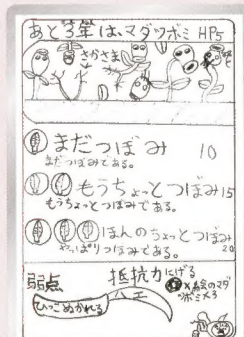 あと3年は、マダツボミ HP5
さかさま
まだつぼみ 10
まだつぼみである。
もうちょっとつぼみ 15
もうちょっとつぼみである。
ほんのちょっとつぼみ
やっぱりつぼみである。 20
弱点 抵抗力 にげる
ひっこぬかれる ハエ